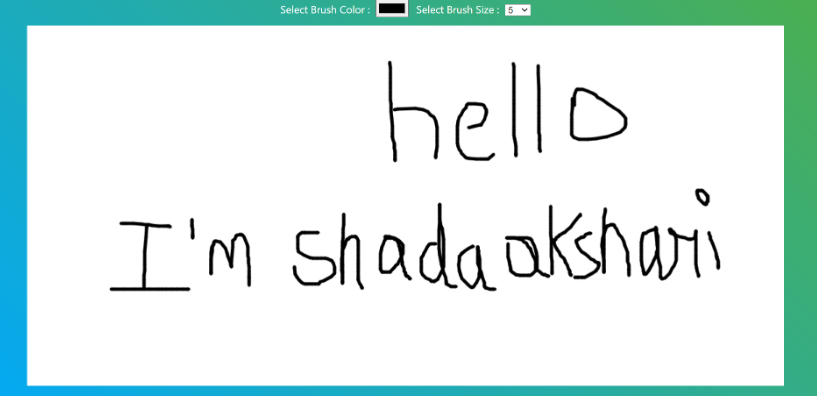 Select Brush Color : Select Brush Size : 5
hello
I'm shadaakshari